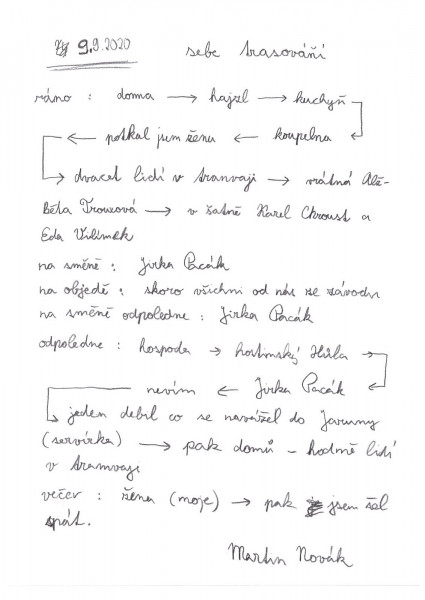 9.9.2020 sebe trasováńí
ráno : doma → hajzl → kuchyň
← potkal jsem ženu ← koupelna
→ dvacet lidí v tramvaji → vrátná Alž-
Běta Trouxová → v šatně Karel Chroust a
Eda Vilímek
na směně : Jirka Pacák
na objedě : skoro všichni od nás ze závodu
na směně odpoledne : Jirka Pacák
odpoledne : hospoda → hostinský Hůla →
nevím ← Jirka Pacák ←
→ jeden debil co se navážel do Jaruny
(servírka) → pak domů – hodmě lidí
v tramvaji
večer : žena (moje) → pak jsem šel
spát.
Martin Novák